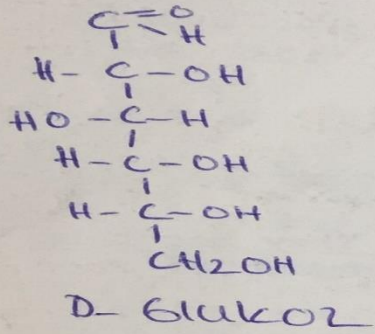 C=O
H
H-C-OH
HO-C-H
H-C-OH
H-C-OH
CH2OH
D- Glukoz